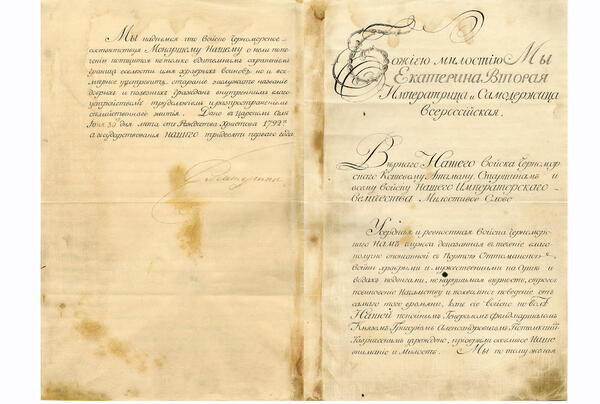 Мы надѣемся что Войско Черноморское
соотвѣтствуя Монаршему Нашему о немъ попе-
ченію потщится не только бдительнымъ охраненіемъ
границъ соблюсти имя храбрыхъ воиновъ но и все-
мѣрное употребитъ стараніе заслужить званіе
добрыхъ и полезныхъ гражданъ внутреннимъ благо-
устройствомъ трудолюбіемъ и распространеніемъ
семейственнаго житія. Дано въ Царскомъ Селѣ
Іюня 30 дня лѣта отъ Рождества Христова 1792го
а государствованія Нашего тридесятъ перваго года
Екатерина
Божіею милостію Мы
Екатерина Вторая
Императрица и Самодержица
Всероссійская.
Вѣрнаго Нашего Войска Черномор-
скаго Кошевому Атаману, Старшинамъ и
всему Войску Нашего Императорскаго
Величества Милостивое Слово
Усердная и ревностная Войска Черномор-
скаго Намъ служба доказанная въ теченіе благо-
получно оконченной съ Портою Оттоманскою
войны храбрыми и мужественными на сушѣ и
водахъ подвигами, не нарушимая вѣрность, строгое
повиновеніе Начальству и похвальное поведеніе отъ
самаго того времяни, какъ сіе Войско по волѣ
Нашей покойнымъ Генераломъ Фельдмаршаломъ
Княземъ Григоріемъ Александровичемъ Потемкинымъ
Таврическимъ учреждено, пріобрѣли особливое Наше
вниманіе и Милость. Мы по тому желая